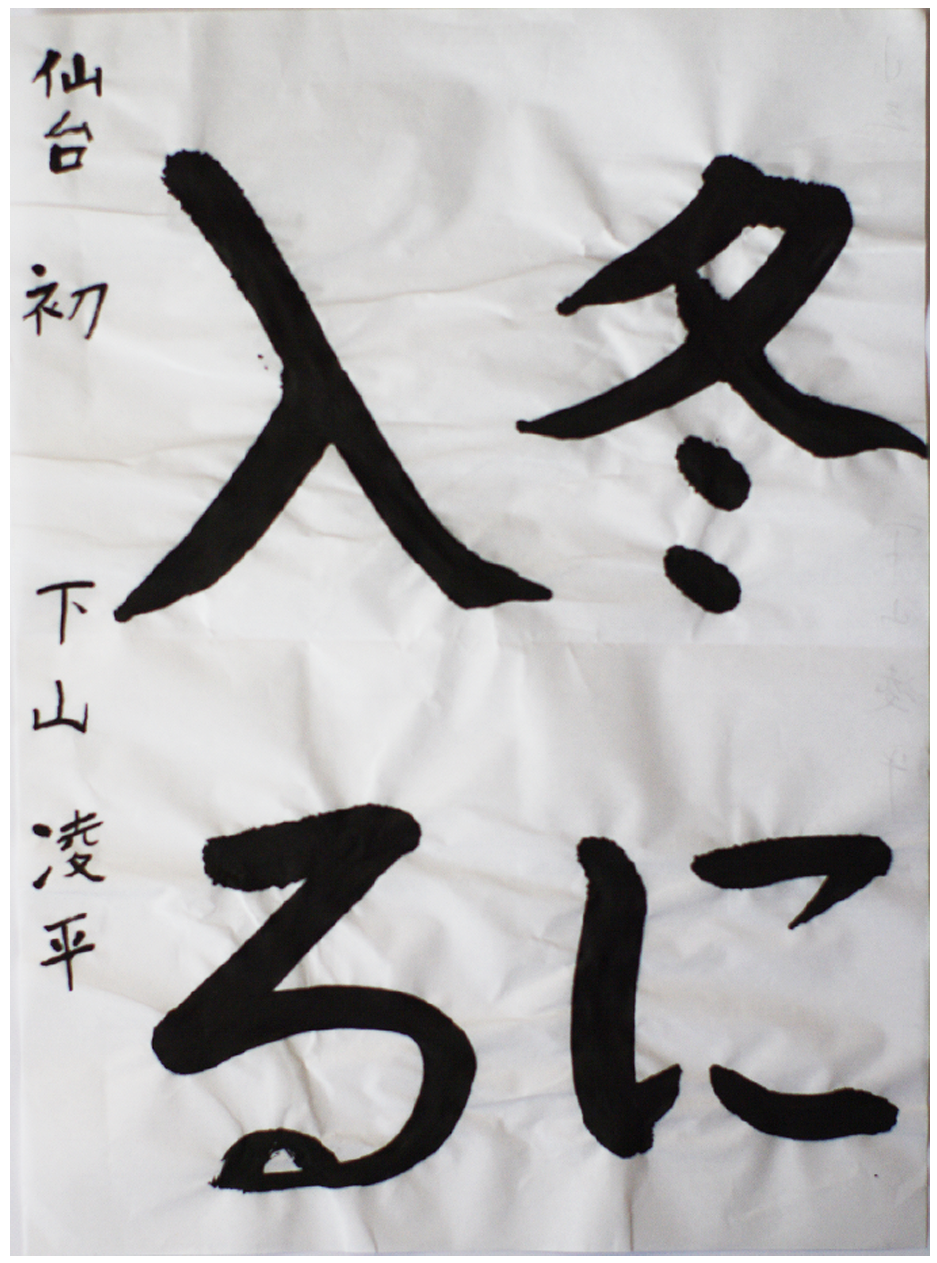 冬に
入る
仙台 初 下山 凌平